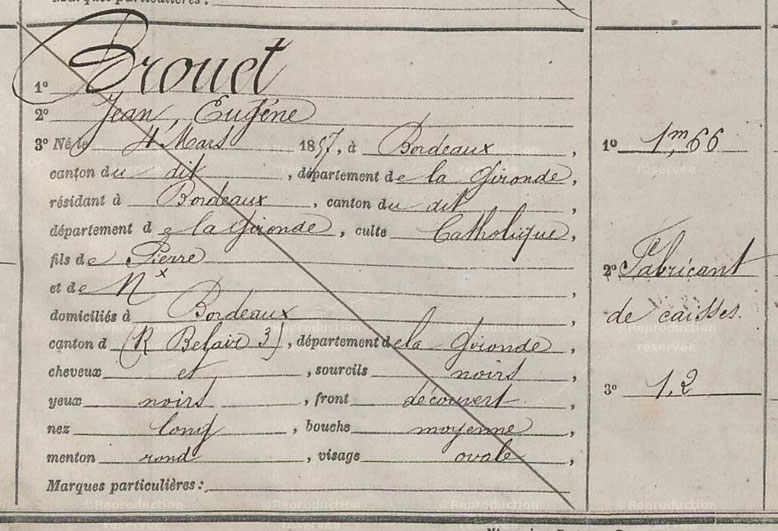 Marques particulières :
1º Drouet
2º Jean, Eugène
3º Né le 4 Mars 1857, à Bordeaux,
canton du dit, département de la Gironde,
résidant à Bordeaux, canton du dit,
département de la Gironde, culte Catholique,
fils de Pierre
et de N x
domiciliés à Bordeaux,
canton d (R Belair 3), département de la Gironde,
cheveux et, sourcils noirs,
yeux noirs, front découvert,
nez long, bouche moyenne,
menton rond, visage ovale,
Marques particulières :
1º 1,m66
2º Fabricant
de caisses.
3º 1,2
Reproduction
réservée